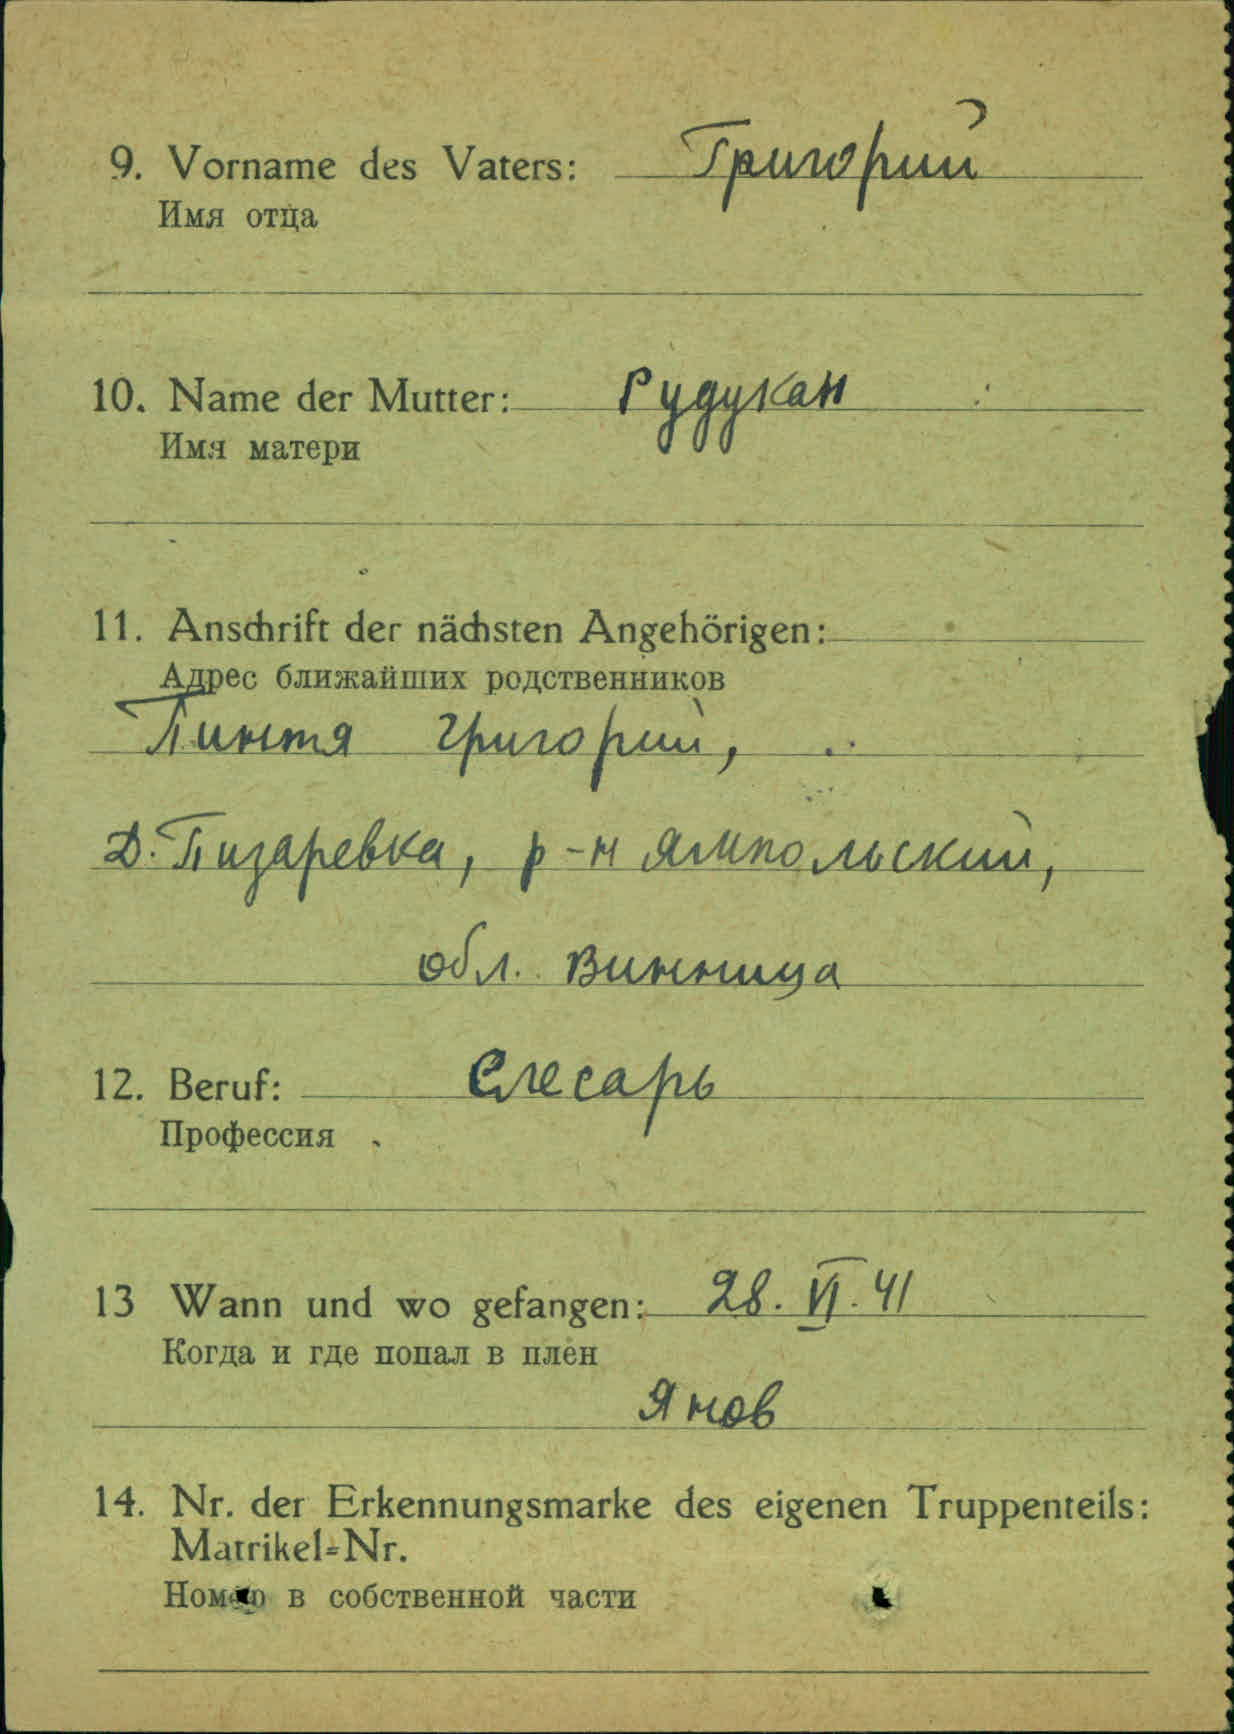 9. Vorname des Vaters: Григорий
Имя отца
10. Name der Mutter: Рудукан
Имя матери
11. Anschrift der nächsten Angehörigen:
Адрес ближайших родственников
Пинтя Григорий,
Д. Пизаревка, р-н Ямпольский,
обл. Винница
12. Beruf: Слесарь
Профессия
13 Wann und wo gefangen: 28. VI. 41
Когда и где попал в плен
Янов
14. Nr. der Erkennungsmarke des eigenen Truppenteils:
Matrikel-Nr.
Номер в собственной части